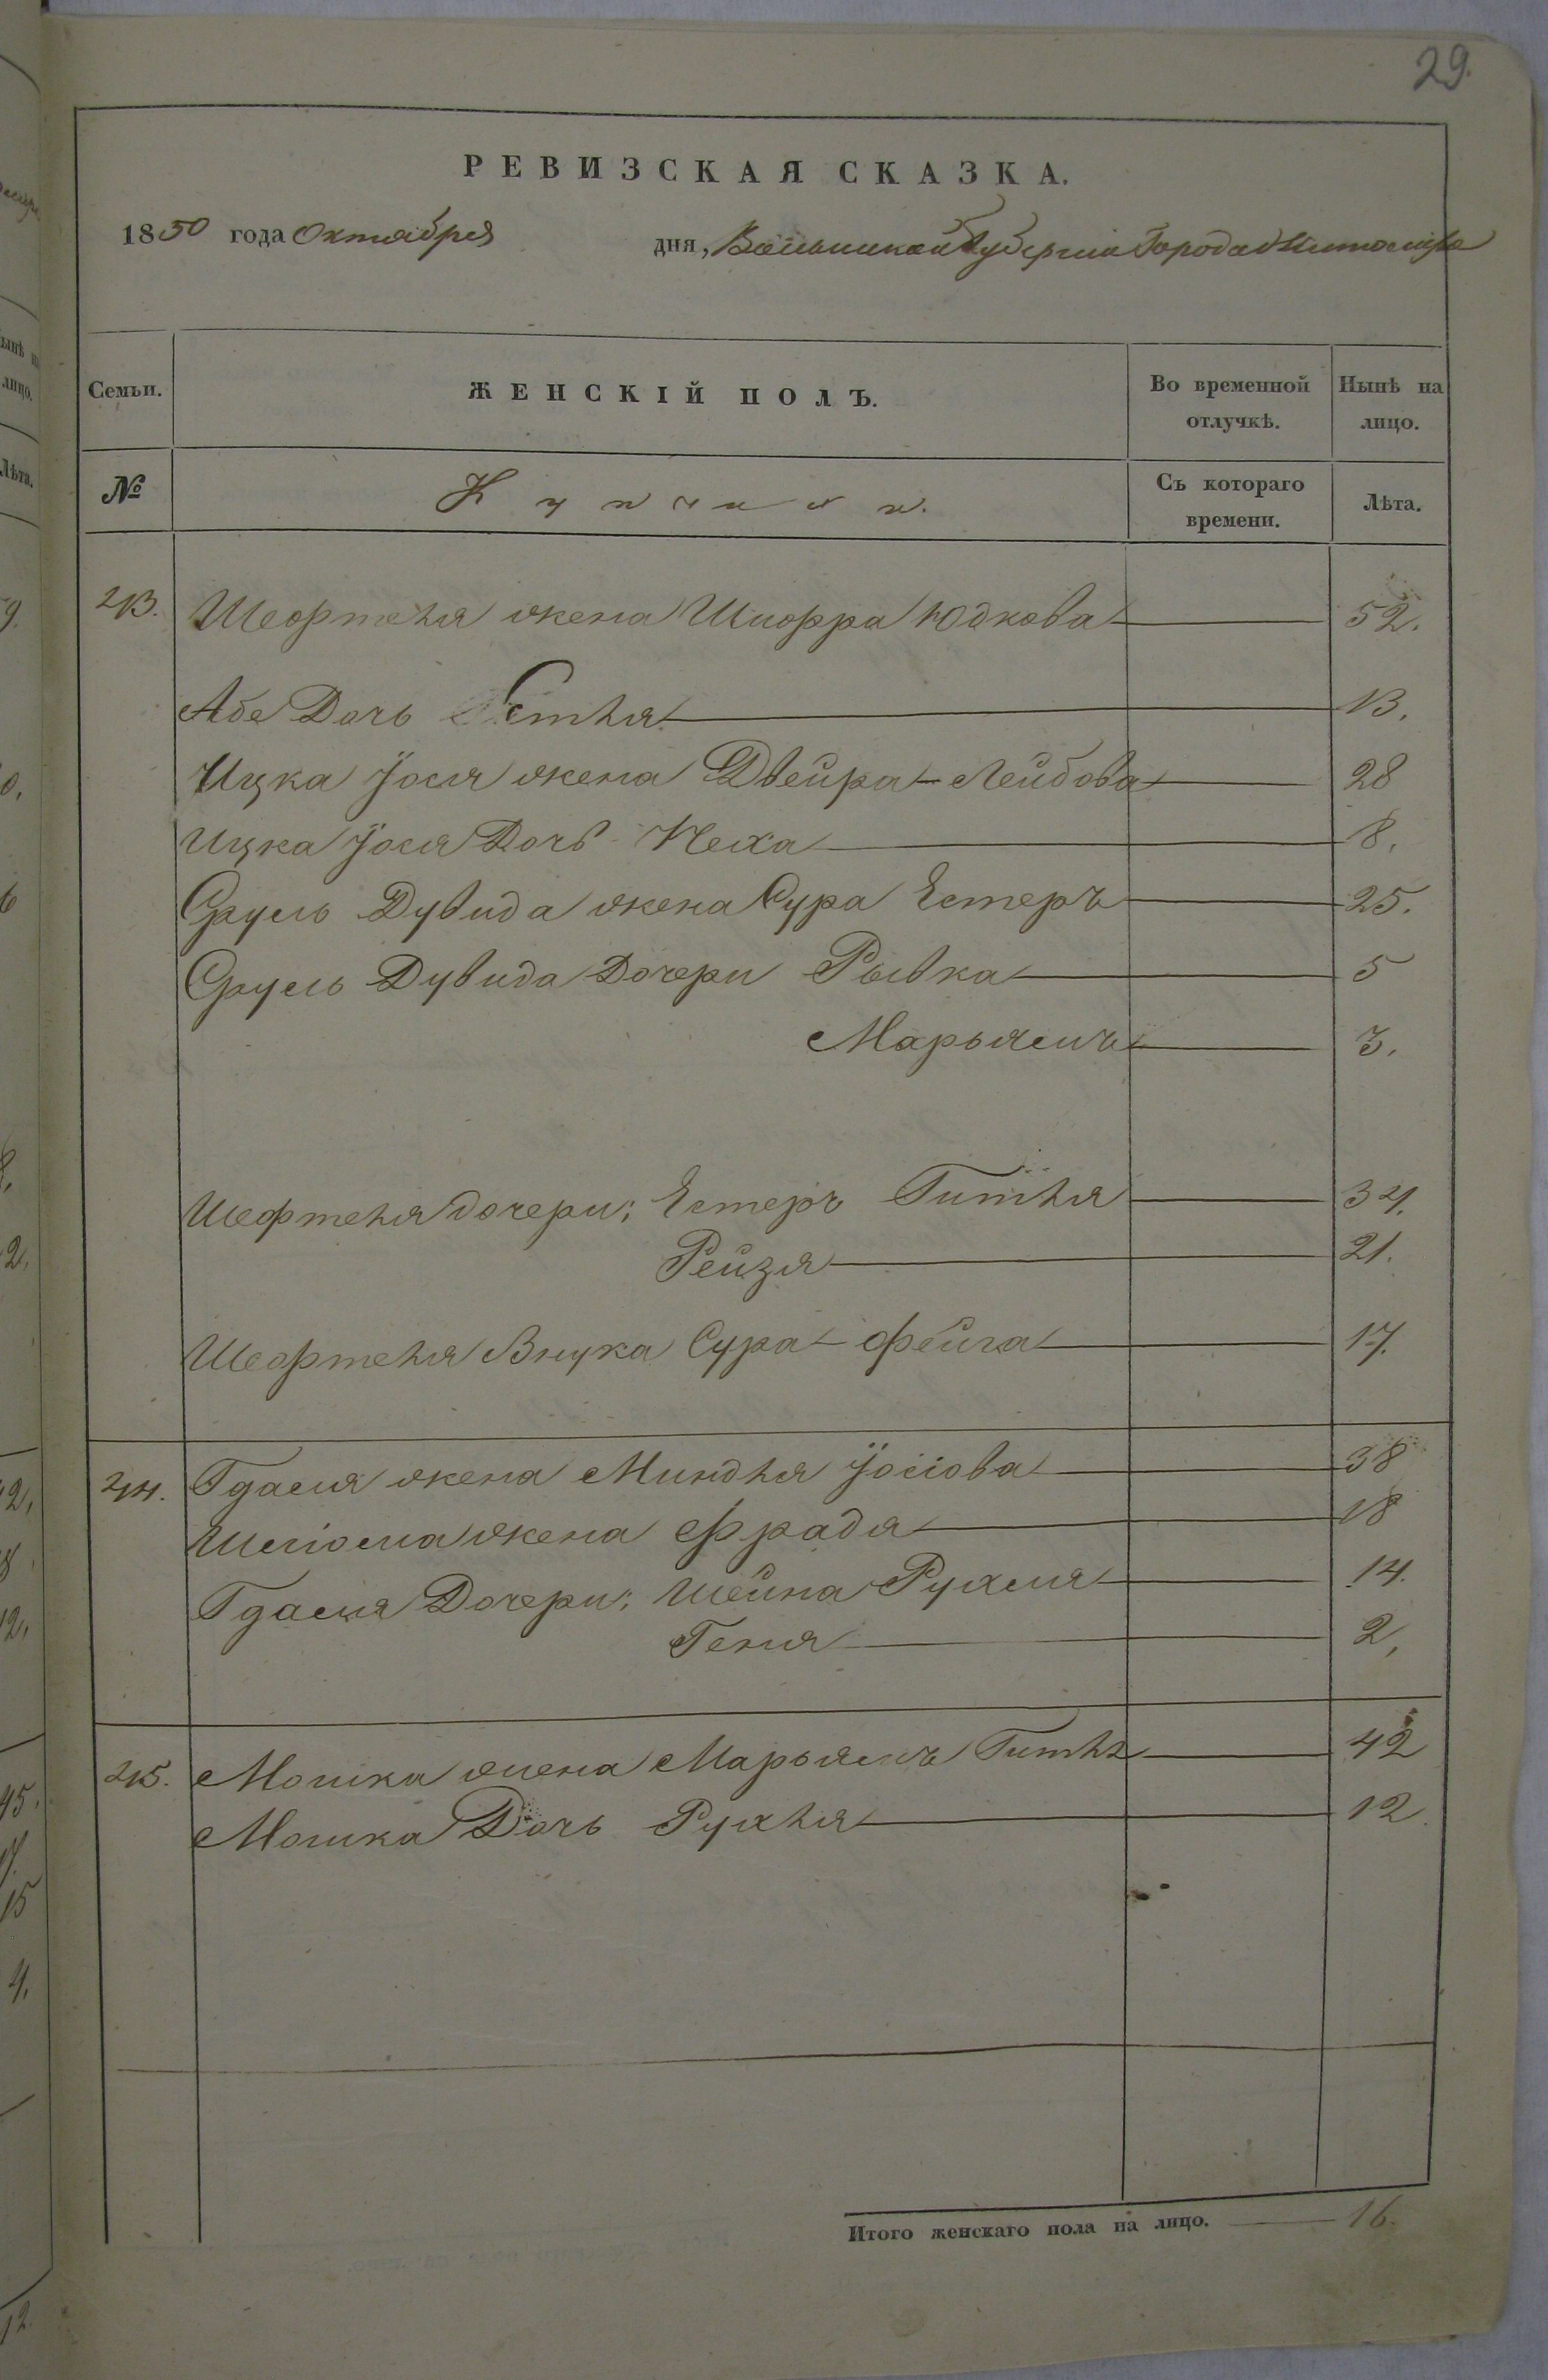 29.
РЕВИЗСКАЯ СКАЗКА.
1850 года Октября дня, Волынской Губерніи Города Житомира
Семьи. ЖЕНСКІЙ ПОЛЪ. Во временной отлучкѣ. Нынѣ на лицо.
№ Съ котораго времени. Лѣта.
213. Шефтеля жена Шифра Юдкова 52.
Абе Дочь Естѣя 13.
Ицка Іося жена Двейра Лейбова 28
Ицка Іося Дочь Неха 8.
Сруль Дувида жена Сура Естеръ 25.
Сруль Дувида Дочери Рывка 5
Марьямъ 3.
Шефтеля дочери; Естеръ Гитля 34.
Рейзя 21.
Шефтеля Внука Сура Фейга 17.
214. Гдаля жена Миндля Іосіова 38
Шліома жена Фрада 18
Гдаля Дочери; Шейна Рухля 14.
Геня 2,
215. Мошка жена Марьямъ Гитля 42
Мошка Дочь Рухля 12.
Итого женскаго пола на лицо. 16.